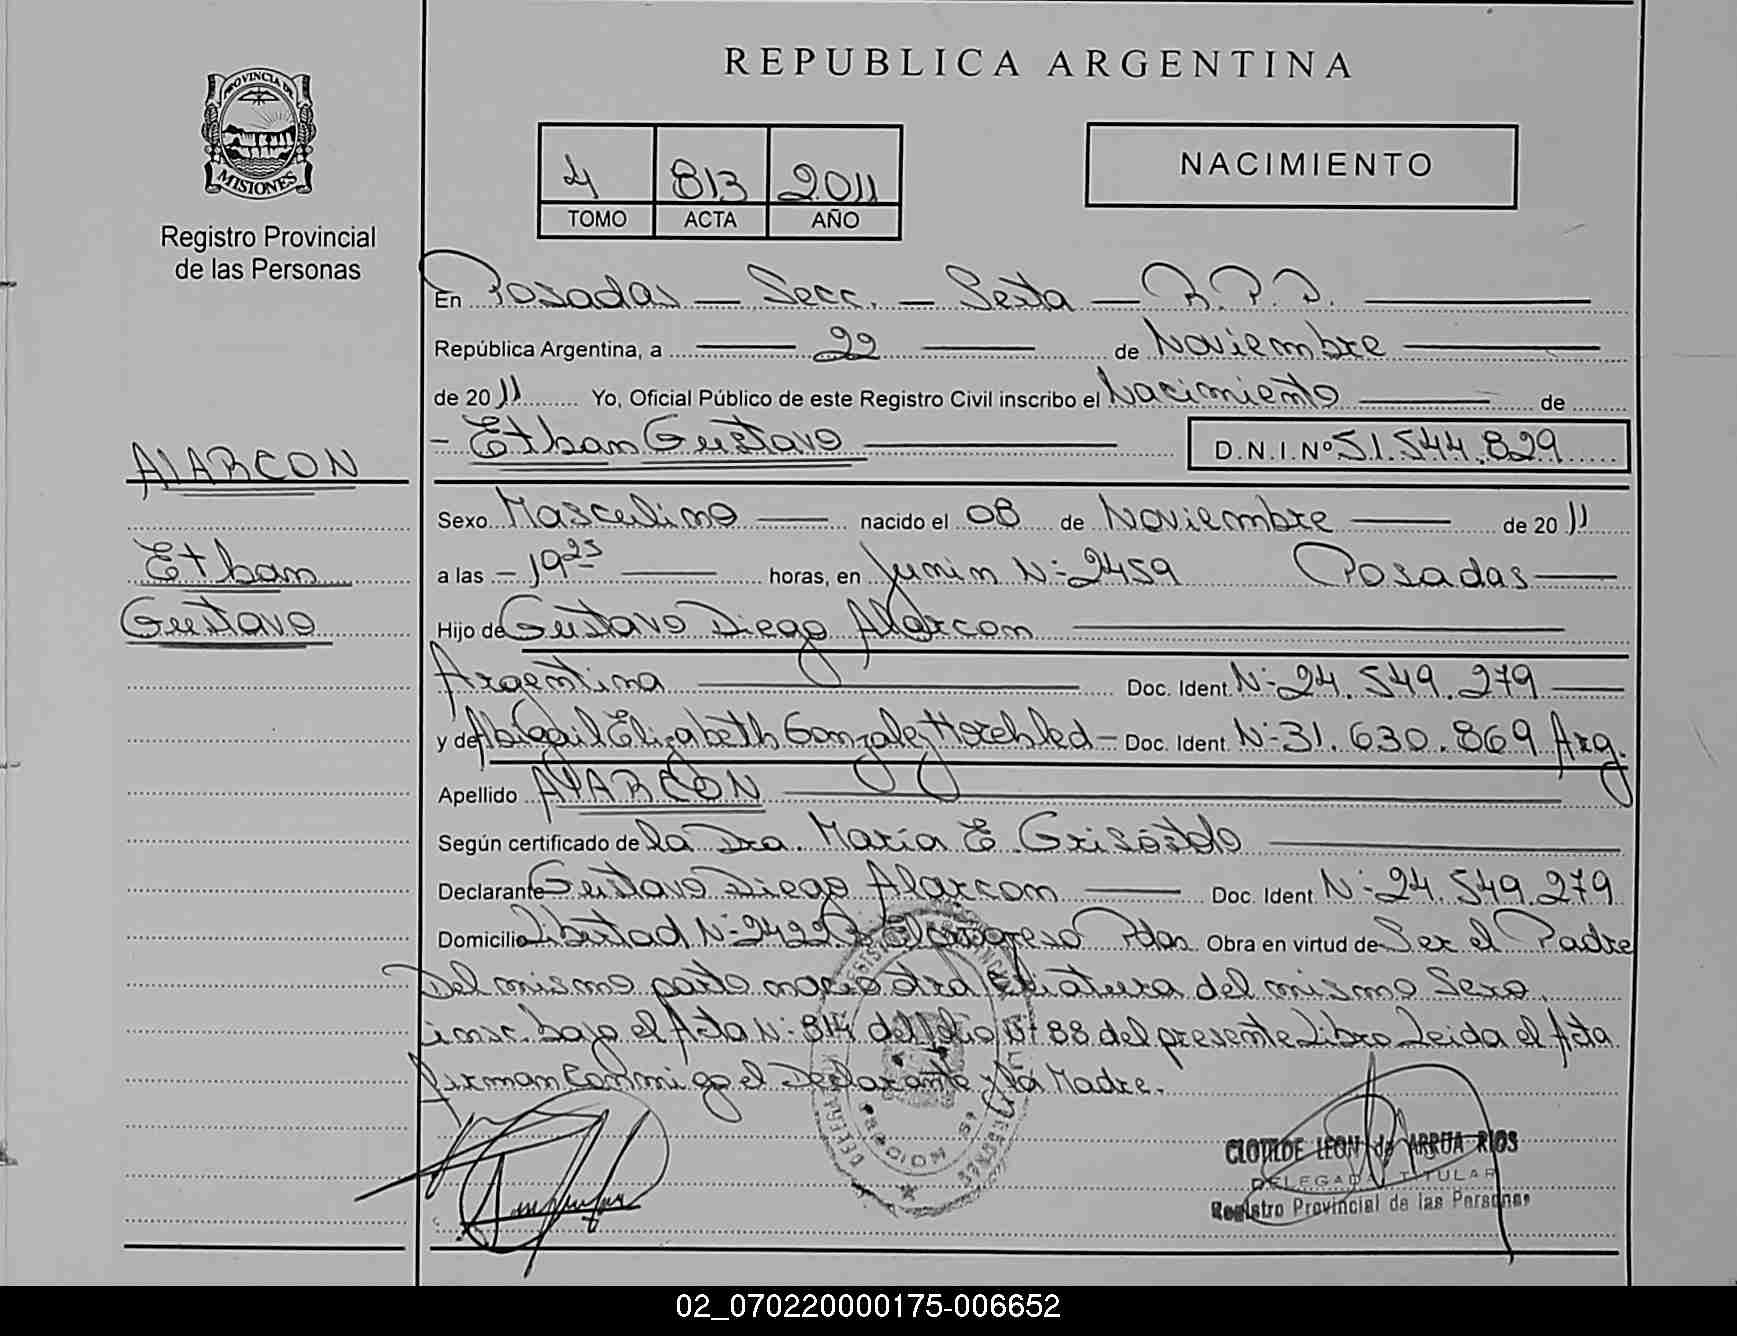 REPUBLICA ARGENTINA
PROVINCIA DE
MISIONES
Registro Provincial
de las Personas
4 813 2011
TOMO ACTA AÑO
NACIMIENTO
En Posadas — Secc. — Sexta — R.P.P.
República Argentina, a 22 de Noviembre
de 2011 Yo, Oficial Público de este Registro Civil inscribo el Nacimiento de
- Ethan Gustavo D.N.I.Nº 51.544.829
ALARCON
Ethan
Gustavo
Sexo Masculino nacido el 08 de Noviembre de 2011
a las - 19 25 horas, en Junin Nº 2459 Posadas
Hijo de Gustavo Diego Alarcon
Argentina Doc. Ident. Nº 24.549.279
y de Abigail Elizabeth Gonzalez - Doc. Ident. Nº 31.630.869 Arg.
Apellido ALARCON
Según certificado de la Dra. Maria E
Declarante Gustavo Diego Alarcon Doc. Ident. Nº 24.549.279
Domicilio Libertad Pdas. Obra en virtud de Ser el Padre
Del mismo parto nacio otra criatura del mismo Sexo.
insc. bajo el Acta Nº 814 del folio Nº 88 del presente Libro Leida el Acta
firman Conmigo el Declarante y la Madre.
CLOTILDE LEON de ARRUA RIOS
DELEGADA TITULAR
Registro Provincial de las Personas
02_070220000175-006652